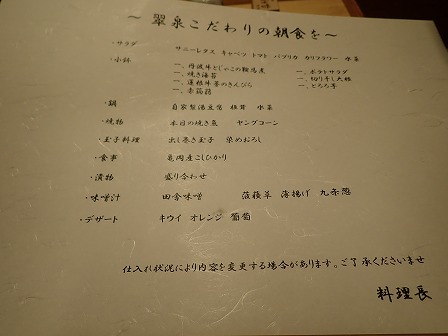 ～ 翠泉こだわりの朝食を ～
・サラダ サニーレタス キャベツ トマト パプリカ カリフラワー 水菜
・小鉢 一、丹波牛とじゃこの鞍馬煮 一、ポテトサラダ
一、焼き海苔 一、切り干し大根
一、蓮根牛蒡のきんぴら 一、とろろ芋
一、赤蒟蒻
・鍋 自家製湯豆腐 椎茸 水菜
・焼物 本日の焼き魚 ヤングコーン
・玉子料理 出し巻き玉子 染めおろし
・食事 亀岡産こしひかり
・漬物 盛り合わせ
・味噌汁 田舎味噌 菠薐草 薄揚げ 九条葱
・デザート キウイ オレンジ 葡萄
仕入れ状況により内容を変更する場合があります。ご了承くださいませ
料理長